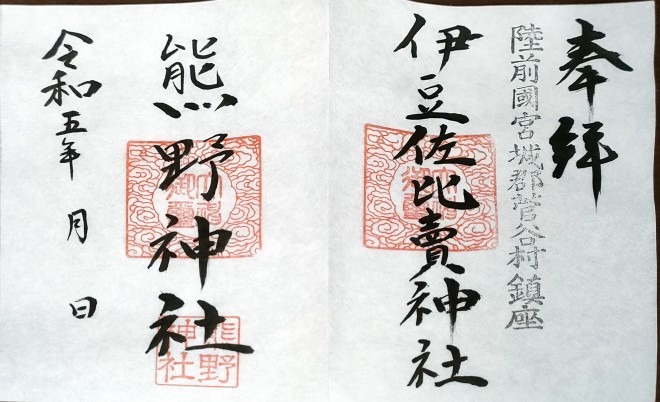 奉拜
陸前國宮城郡菅谷村鎮座
伊豆佐比賣神社
熊野神社
熊野
神社
令和五年 月 日